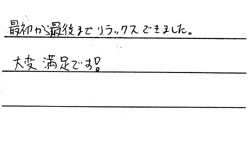 最初から最後までリラックスできました。
大変満足です!